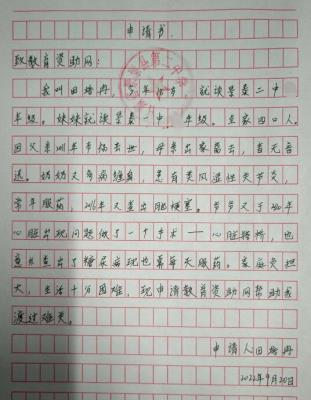 申请书
致教育资助网：
我叫田培冉，今年18岁，就读景泰二中
年级。妹妹就读景泰一中 年级。全家四口人。
因父亲 年 去世，母亲出家 去，杳无音
迅。奶奶又疾病缠身，患有类风湿性关节炎，
常年服药，2016年又查出脑梗塞。爷爷又于 年
心脏出现问题做了一个手术——心脏搭桥，也
查出了糖尿病现也靠每天服药。家庭负担
大，生活十分困难，现申请教育资助网帮助我
渡过难关。
申请人田培冉
2022年9月20日